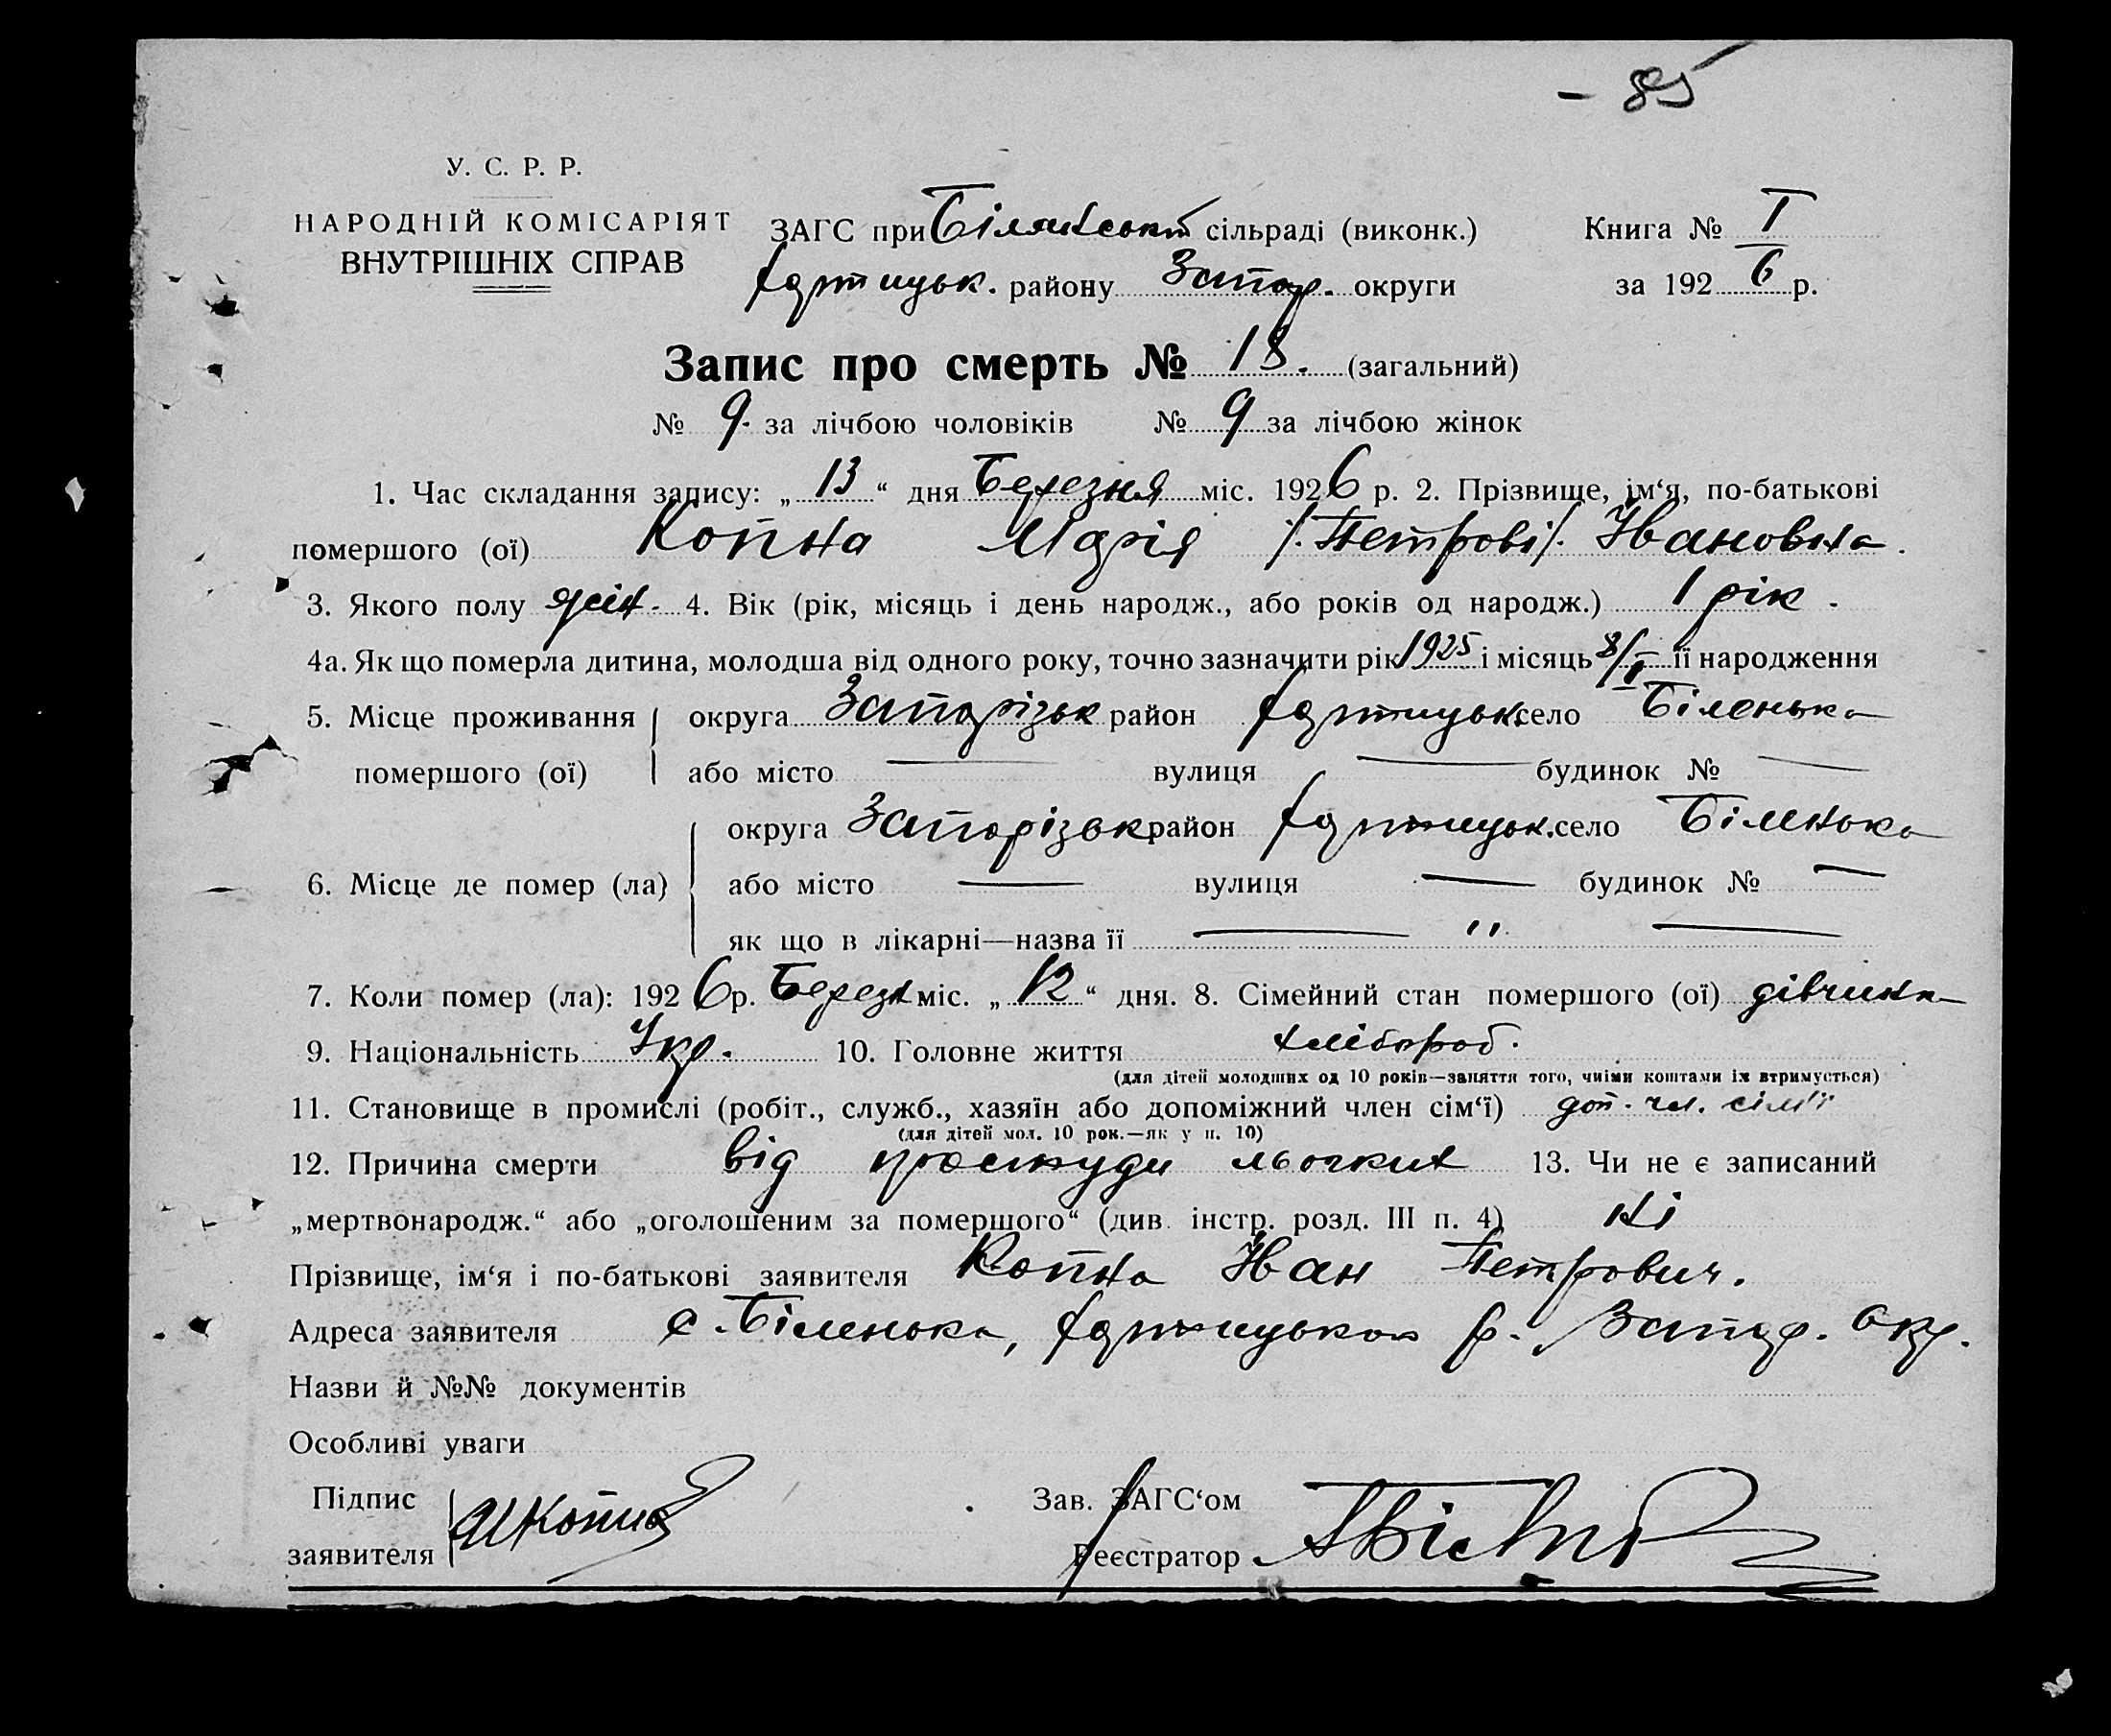 – 85
У. С. Р. Р.
НАРОДНІЙ КОМІСАРІЯТ
ВНУТРІШНІХ СПРАВ
ЗАГС при сільраді (виконк.) Книга № I
Хортицьк. району Запор. округи за 1926 р.
Запис про смерть № 18. (загальний)
№ 9. за лічбою чоловіків № 9 за лічбою жінок
1. Час складання запису: „13“ дня Березня міс. 1926 р. 2. Прізвище, ім‘я, по-батькові
помершого (ої) Копна Марія /.Петрові/. Івановна.
3. Якого полу жін. 4. Вік (рік, місяць і день народж., або років од народж.) 1 рік.
4а. Як що померла дитина, молодша від одного року, точно зазначити рік 1925 і місяць 8/I її народження
5. Місце проживання округа Запорізьк район Хортицьк. село Біленька
помершого (ої) або місто — вулиця — будинок № —
округа Запорізьк район Хортицьк. село Біленька
6. Місце де помер (ла) або місто — вулиця — будинок № —
як що в лікарні—назва її — " —
7. Коли помер (ла): 1926 р. Березн міс. „12“ дня. 8. Сімейний стан помершого (ої) дівчина
9. Національність Укр. 10. Головне життя хлібороб.
(для дітей молодших од 10 років—заняття того, чиїми коштами їх втримується)
11. Становище в промислі (робіт., служб., хазяїн або допоміжний член сім‘ї) доп. чл. сім'ї
(для дітей мол. 10 рок.—як у п. 10)
12. Причина смерти від простуди льогких 13. Чи не є записаний
„мертвонародж.“ або „оголошеним за помершого“ (див. інстр. розд. III п. 4) ні
Прізвище, ім‘я і по-батькові заявителя Копна Іван Петрович.
Адреса заявителя с. Біленька, Хортицького р. Запор. окр.
Назви й №№ документів
Особливі уваги
Підпис Зав. ЗАГС‘ом
заявителя ИКопна Реєстратор